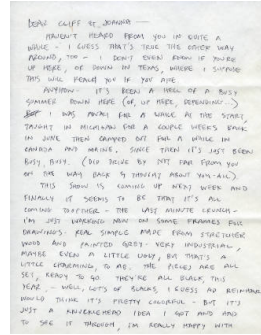 DEAR CLIFF ET JOANNA -
HAVEN'T HEARD FROM YOU IN QUITE A
WHILE - I GUESS THAT'S TRUE THE OTHER WAY
AROUND, TOO - I DON'T EVEN KNOW IF YOU'RE
UP HERE, OR DOWN IN TEXAS, WHERE I SUPPOSE
THIS WILL REACH YOU IF YOU ARE.
ANYHOW - IT'S BEEN A HELL OF A BUSY
SUMMER DOWN HERE (OR, UP HERE, DEPENDING...)
I WAS AWAY FOR A WHILE AT THE START,
TAUGHT IN MICHIGAN FOR A COUPLE WEEKS BACK
IN JUNE THEN CAMPED OUT FOR A WHILE IN
CANADA AND MAINE. SINCE THEN IT'S JUST BEEN
BUSY, BUSY. (DID DRIVE BY NOT FAR FROM YOU
ON THE WAY BACK & THOUGHT ABOUT YOU-ALL)
THIS SHOW IS COMING UP NEXT WEEK AND
FINALLY IT SEEMS TO BE THAT IT'S ALL
COMING TOGETHER - THE LAST MINUTE CRUNCH -
I'M JUST WORKING NOW ON SOME FRAMES FOR
DRAWINGS - REAL SIMPLE MADE FROM STRETCHER
WOOD AND PAINTED GREY - VERY INDUSTRIAL,
MAYBE EVEN A LITTLE UGLY, BUT THAT'S A
LITTLE CHARMING, TO ME. THE PIECES ARE ALL
SET, READY TO GO. THEY'RE ALL BLACK, THIS
YEAR - WELL, LOTS OF BLACKS, I GUESS AD REINHARDT
WOULD THINK IT'S PRETTY COLORFUL - BUT IT'S
JUST A KNUCKLEHEAD IDEA I GOT AND HAD
TO SEE IT THROUGH, I'M REALLY HAPPY WITH